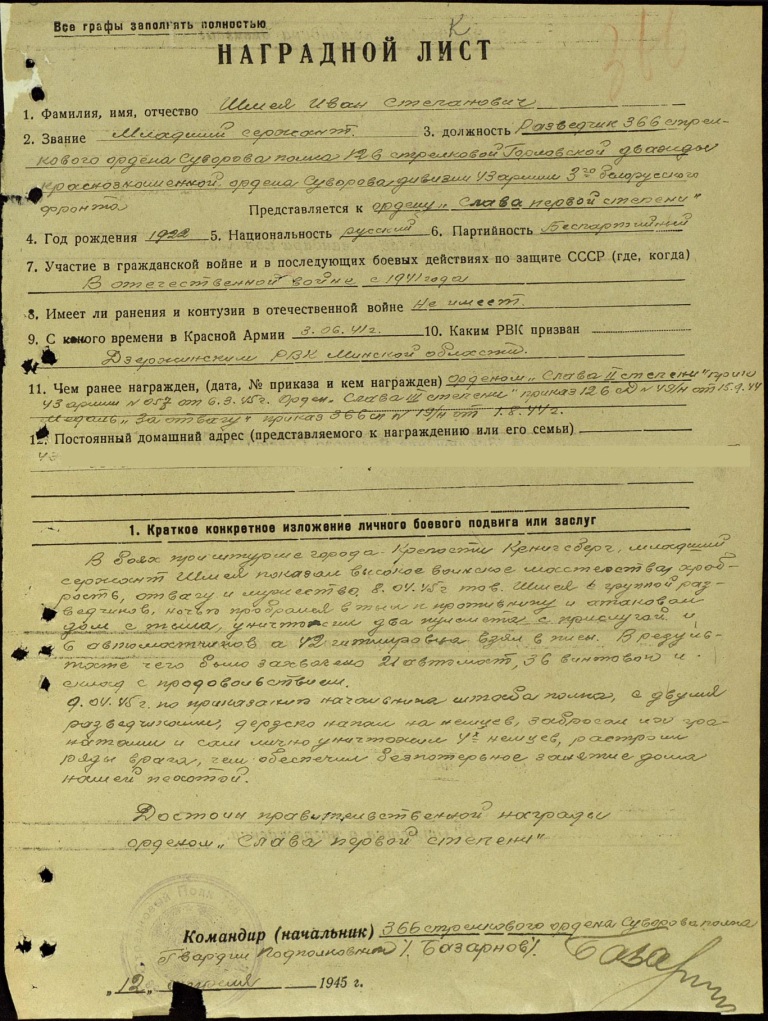 Все графы заполнять полностью
К
НАГРАДНОЙ ЛИСТ
1. Фамилия, имя, отчество Шмея Иван Степанович
2. Звание Младший сержант. 3. должность Разведчик 366 стрел-
кового ордена Суворова полка 126 стрелковой Горловской дважды
краснознаменной ордена Суворова дивизии 43 армии 3го белорусского
фронта Представляется к ордену „Слава первой степени"
4. Год рождения 1922 5. Национальность русский 6. Партийность Беспартийный
7. Участие в гражданской войне и в последующих боевых действиях по защите СССР (где, когда)
В отечественной войне с 1941 года
8. Имеет ли ранения и контузии в отечественной войне Не имеет.
9. С какого времени в Красной Армии 3.06.41г. 10. Каким РВК призван
Дзержинским РВК Минской области.
11. Чем ранее награжден, (дата, № приказа и кем награжден) орденом „Слава II степени"
43 армии № 057 от 6.3.45г. Орден „Слава III степени" приказ 126 сд № 49/н от 15.9.44
Медаль „За отвагу" приказ 366 сп № 19/н от 1.8.44г.
12. Постоянный домашний адрес (представляемого к награждению или его семьи)
1. Краткое конкретное изложение личного боевого подвига или заслуг
В боях при штурме города-Крепости Кенигсберг, младший
сержант Шмея показал высокое воинское мастерство, храб-
рость, отвагу и мужество. 8.04.45г тов. Шмея с группой раз-
ведчиков, ночью пробрался в тыл к противнику и атаковал
дом с тыла, уничтожил два пулемета с прислугой и
6 автоматчиков а 42 гитлеровца взял в плен. В резуль-
тате чего было захвачено 21 автомат, 36 винтовок и
склад с продовольствием.
9.04.45г. по приказанию начальника штаба полка, с двумя
разведчиками, дерзко напал на немцев, забросал их гра-
натами и сам лично уничтожил 4х немцев, расстроил
ряды врага, чем обеспечил безпотерьное занятие дома
нашей пехотой.
Достоин правительственной награды
орденом „Слава первой степени"
Командир (начальник) 366 стрелкового ордена Суворова полка
Гвардии Подполковник /Базарнов/.
„12„ апреля 1945 г.